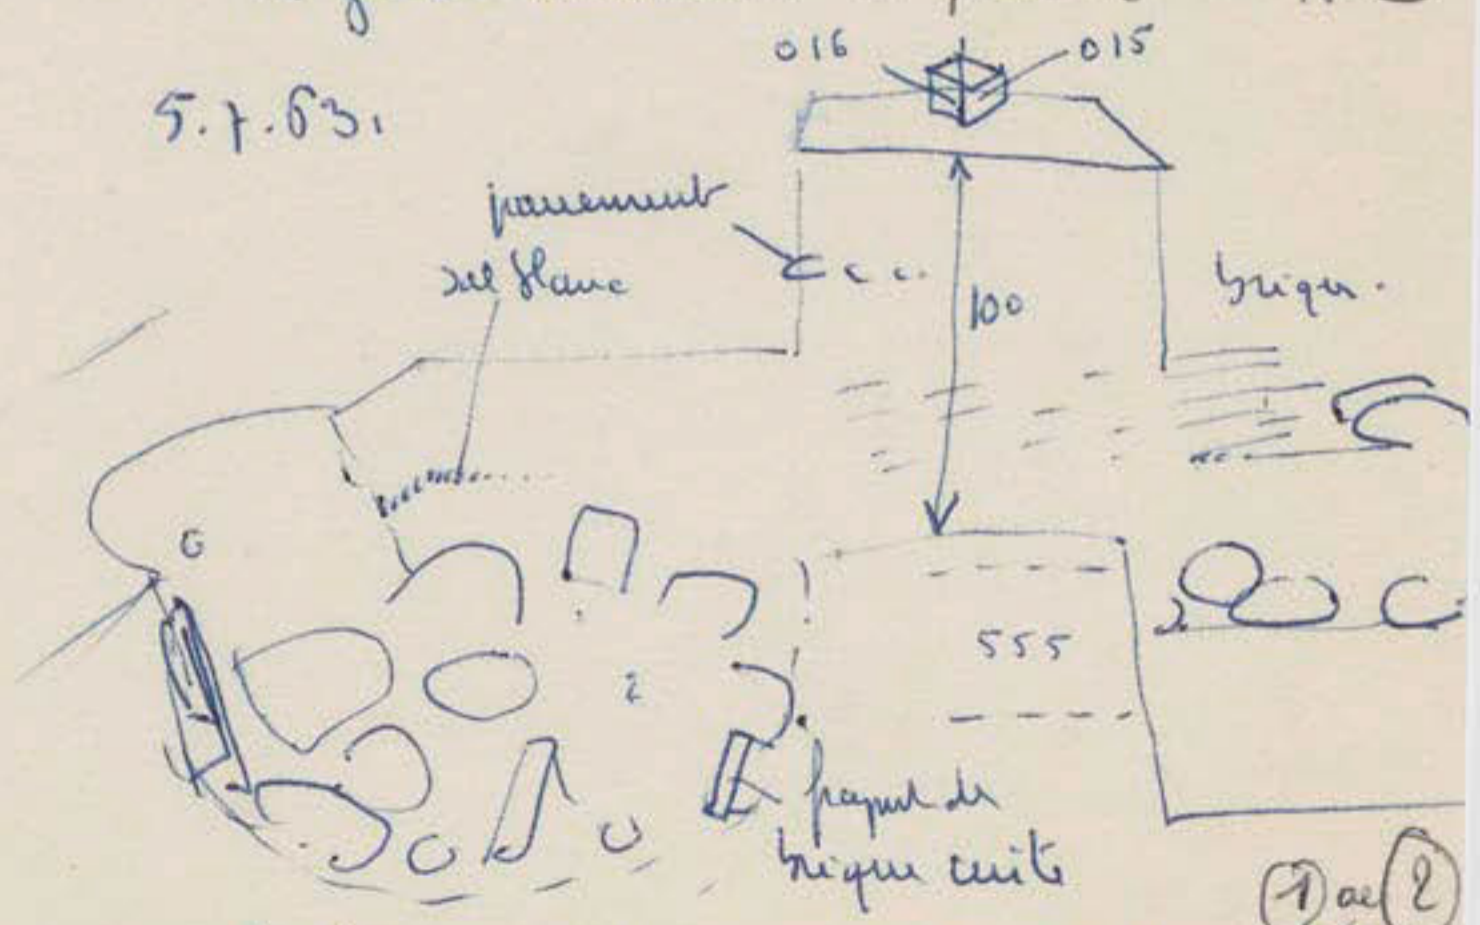 016
015
5.7.63.
parement
sol blanc
100
briques.
G
555
2
fragment de
brique cuite
1 ou 2